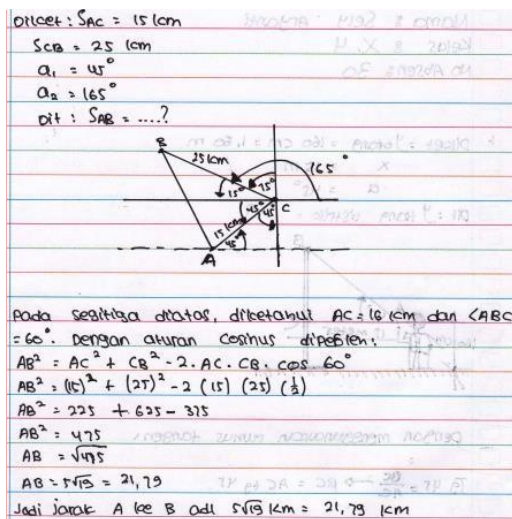 Diket: SAC = 15 km
SCB = 25 km
a1 = 45°
a2 = 165°
Dit : SAB = ....?
B
25 km
165°
15°
75°
C
45°
45°
15 km
45°
A
Pada segitiga diatas, diketahui AC = 16 km dan <ABC
= 60°. Dengan aturan cosinus diperleh:
AB² = AC² + CB² - 2. AC. CB. cos 60°
AB² = (15)² + (25)² - 2 (15) (25) (1/2)
AB² = 225 + 625 - 375
AB² = 475
AB = √475
AB = 5√19 = 21,79
Jadi jarak A ke B adl 5√19 km = 21,79 km